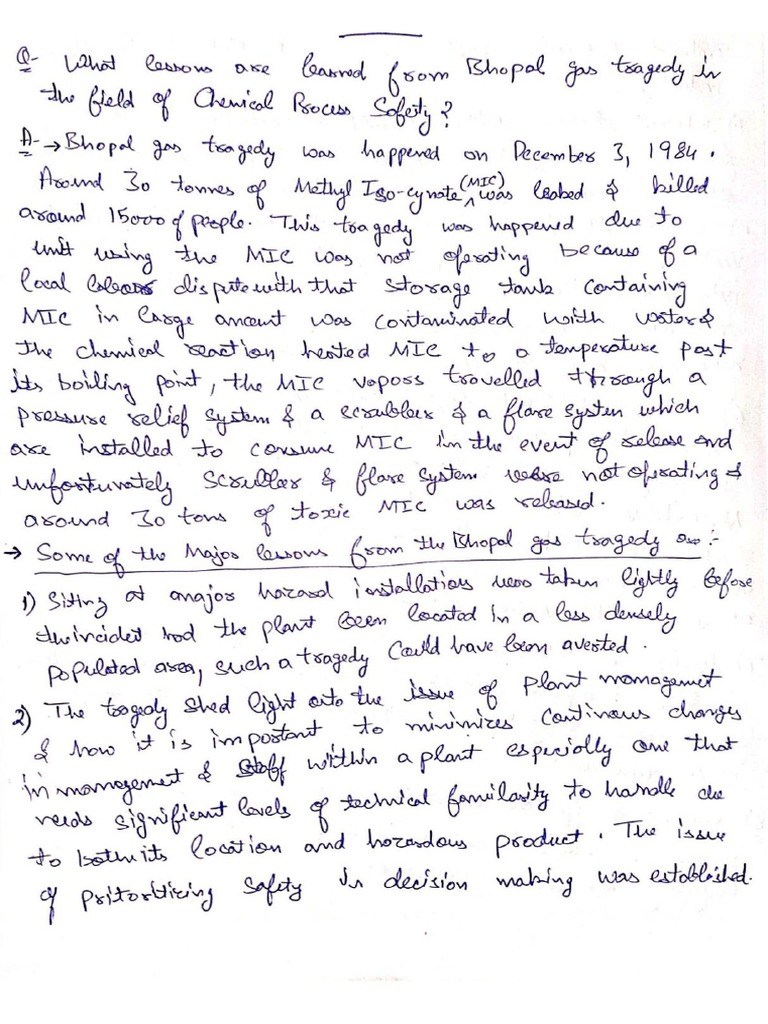 Q- What lessons are learned from Bhopal gas tragedy in
the field of Chemical Process Safety?
A- → Bhopal gas tragedy was happened on December 3, 1984.
Around 30 tonnes of Methyl Iso-cynate (MIC) was leaked & killed
around 15000 of people. This tragedy was happened due to
unit using the MIC was not operating because of a
local labour dispute with that storage tank containing
MIC in large amount was contaminated with water &
the chemical reaction heated MIC to a temperature past
its boiling point, the MIC vapors travelled through a
pressure relief system & a scrubber & a flare system which
are installed to consume MIC in the event of release and
unfortunately scrubber & flare system were not operating &
around 30 tons of toxic MIC was released.
→ Some of the Major lessons from the Bhopal gas tragedy are:-
1) Siting at major hazard installation were taken lightly before
the incident had the plant been located in a less densely
populated area, such a tragedy could have been averted.
2) The tragedy shed light onto the issue of plant management
& how it is important to minimizes continous changes
in management & staff within a plant especially one that
needs significant levels of technical familarity to handle due
to both its location and hazardous product. The issue
of prioritizing safety in decision making was established.